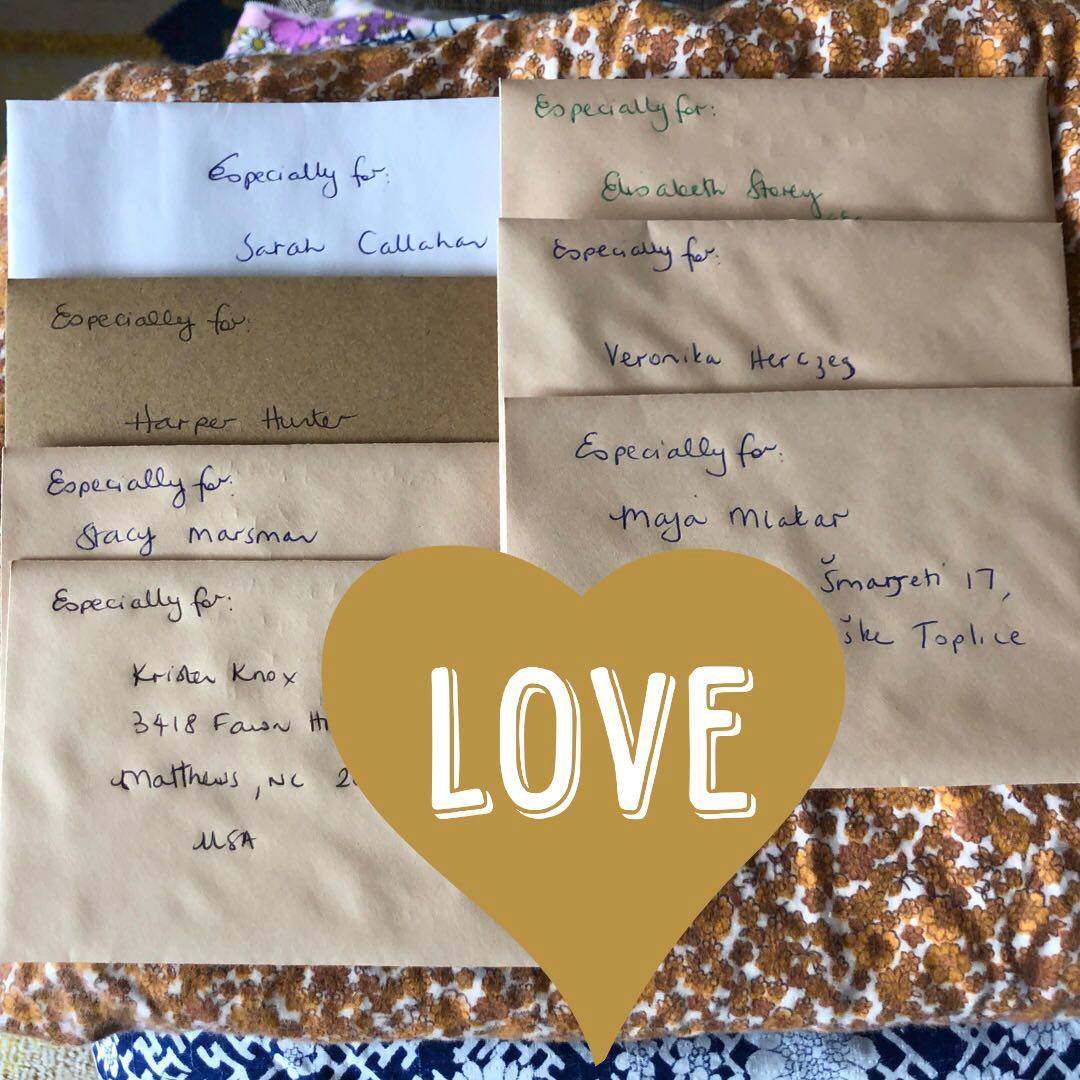 Especially for:
Sarah Callahan
Especially for:
Harper Hunter
Especially for:
Stacy Marsman
Especially for:
Kristen Knox
3418 Fawn
Matthews, NC
USA
Especially for:
Elisabeth Storey
Especially for:
Veronika Herczeg
Especially for:
Maja Mlakar
Šmarjeti 17,
ške Toplice
LOVE